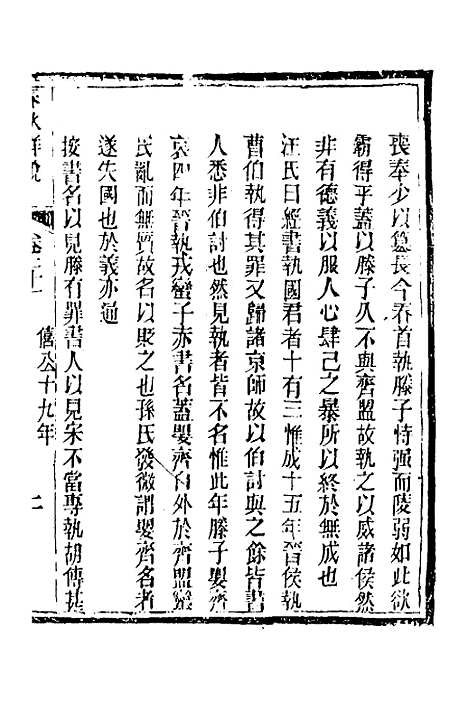 喪奉少以簒長今春首執滕子恃强而陵弱如此欲
霸得乎蓋以滕子久不與齊盟故執之以威諸侯然
非有德義以服人心肆己之暴所以終於無成也
汪氏曰經書執國君者十有三惟成十五年晉侯執
曹伯執得其罪又歸諸京師故以伯討與之餘皆書
人悉非伯討也然見執者皆不名惟此年滕子嬰齊
哀四年晉執戎蠻子赤書名蓋嬰齊自外於齊盟蠻
民亂而無質故名以貶之也孫氏發微謂嬰齊名者
遂失國也於義亦通
按書名以見滕有罪書人以見宋不當專執胡傳甚
春秋詳說 卷二十一 僖公十九年 二